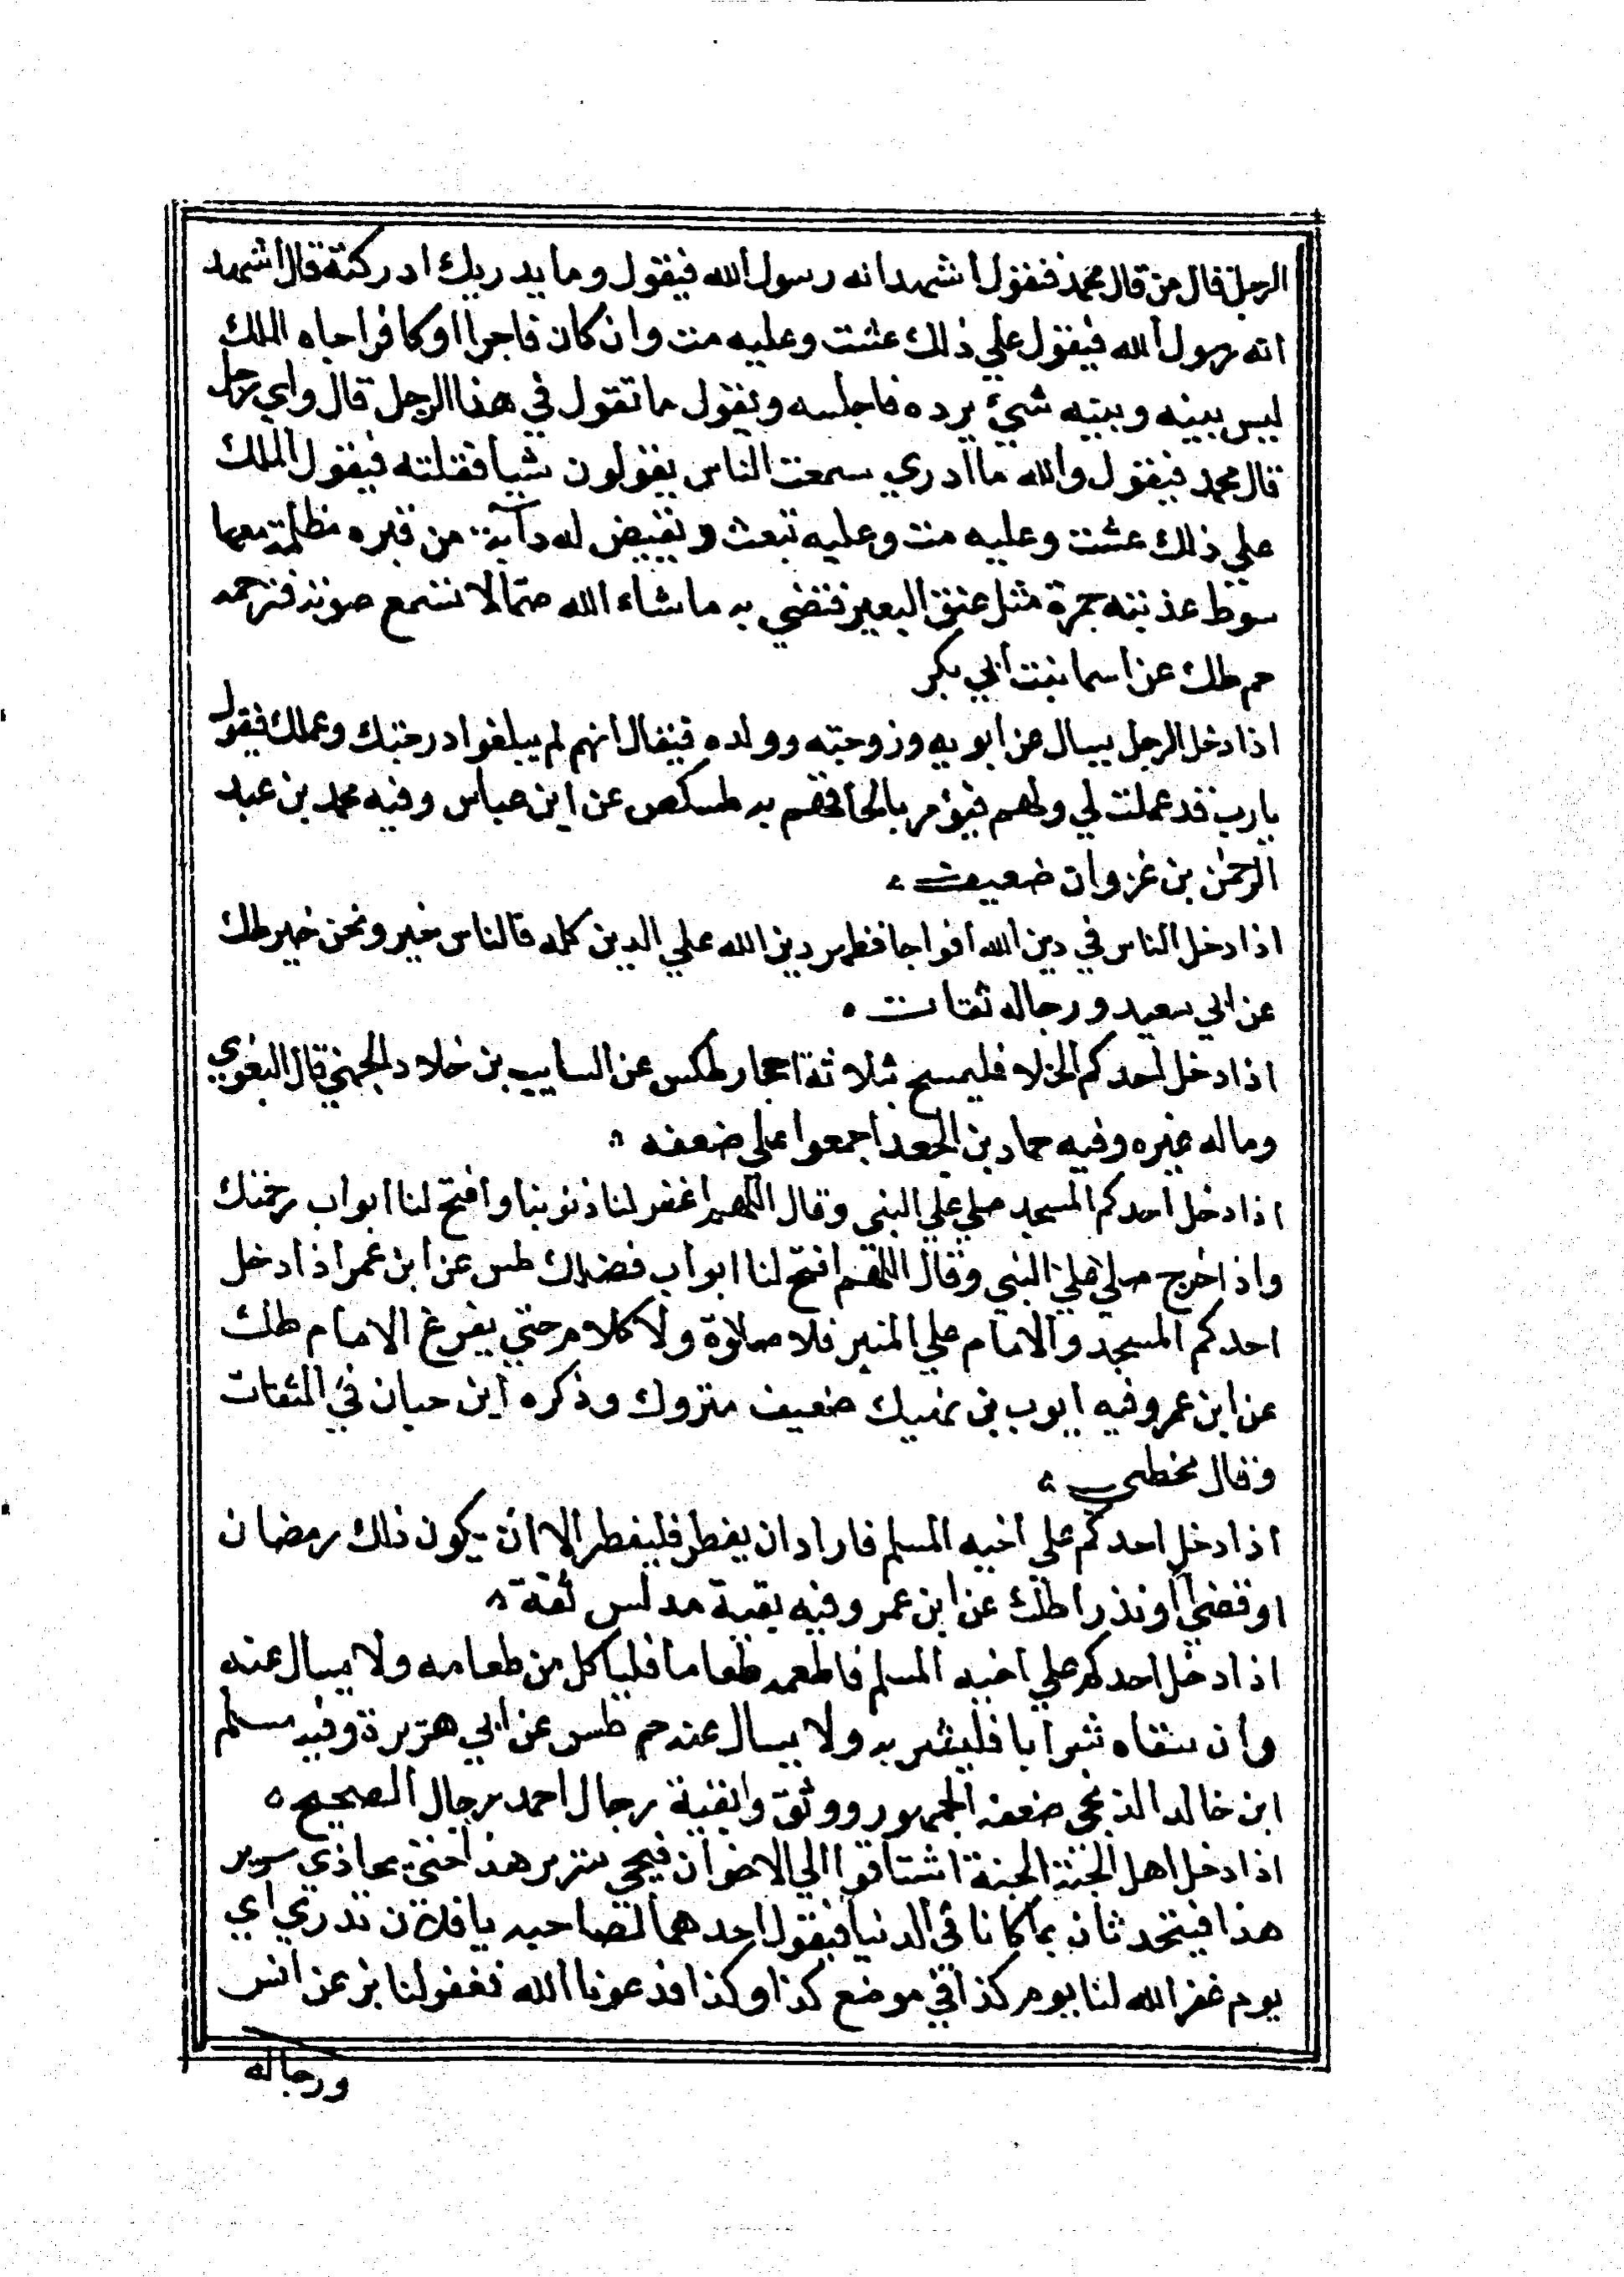 الرجل قال من قال محمد فيقول اشهد انه رسول الله فيقول وما يدريك ادركته قال اشهد
انه رسول الله فيقول علي ذلك عشت وعليه مت وان كان فاجرا اوكافرا جاه الملك
ليس بينه وبينه شيئ يرده فاجلسه ويقول ما تقول في هذا الرجل قال واي رجل
قال محمد فيقول والله ما ادري سمعت الناس يقولون شيا فقلته فيقول الملك
علي ذلك عشت وعليه مت وعليه تبعث ونقيض له دآبة من قبره مظلمة معها
سوط عذبته جمرة مثل عنق البعير فتضي به ما شاء الله صما لا تسمع صوته فترحمه
حم طك عن اسما بنت ابي بكر
اذا دخل الرجل يسال عن ابويه وزوجته وولده فيقال انهم لم يبلغوا درجتك وعملك فيقول
يارب قد عملت لي ولهم فيؤمر بالحاقهم به طسكص عن ابن عباس وفيه محمد بن عبد
الرحمن بن غزوان ضعيف
اذا دخل الناس في دين الله افواجا فظهر دين الله علي الدين كله فالناس خير ونحن خير طك
عن ابي سعيد ورجاله ثقات
اذا دخل احدكم الخلا فليمسح بثلاثة احجار طكس عن السايب بن خلاد الجهني قال البغوي
وماله غيره وفيه حماد بن الجعد اجمعوا علي ضعفه
اذا دخل احدكم المسجد صلي علي النبي وقال اللهم اغفر لنا ذنوبنا وافتح لنا ابواب رحمتك
واذا خرج صلي علي النبي وقال اللهم افتح لنا ابواب فضلك طس عن ابن عمر اذا دخل
احدكم المسجد والامام علي المنبر فلا صلاوة ولا كلام حتي يفرغ الامام طك
عن ابن عمر وفيه ايوب بن نهيك ضعيف متروك وذكره ابن حبان في الثقات
وقال يخطي
اذا دخل احدكم علي اخيه المسلم فاراد ان يفطر فليفطر الا ان يكون ذلك رمضان
او قضي او نذرا طك عن ابن عمر وفيه بقية مدلس ثقة
اذا دخل احدكم علي اخيه المسلم فاطعمه طعاما فلياكل من طعامه ولا يسال عنه
وان سقاه شرابا فليشربه ولا يسال عنه حم طس عن ابي هريرة وفيه مسلم
ابن خالد الذنجي ضعفه الجمهور ووثق وابقية رجال احمد رجال الصحيح
اذا دخل اهل الجنة الجنة اشتاقوا الي الاخوان فيجي سرير هذا حتي يحاذي سرير
هذا فيتحدثان بما كانا في الدنيا فيقول احدهما لصاحبه يا فلان تدري اي
يوم غفر الله لنا يوم كذا في موضع كذا وكذا فدعونا الله فغفر لنا بز عن انس
ورجاله